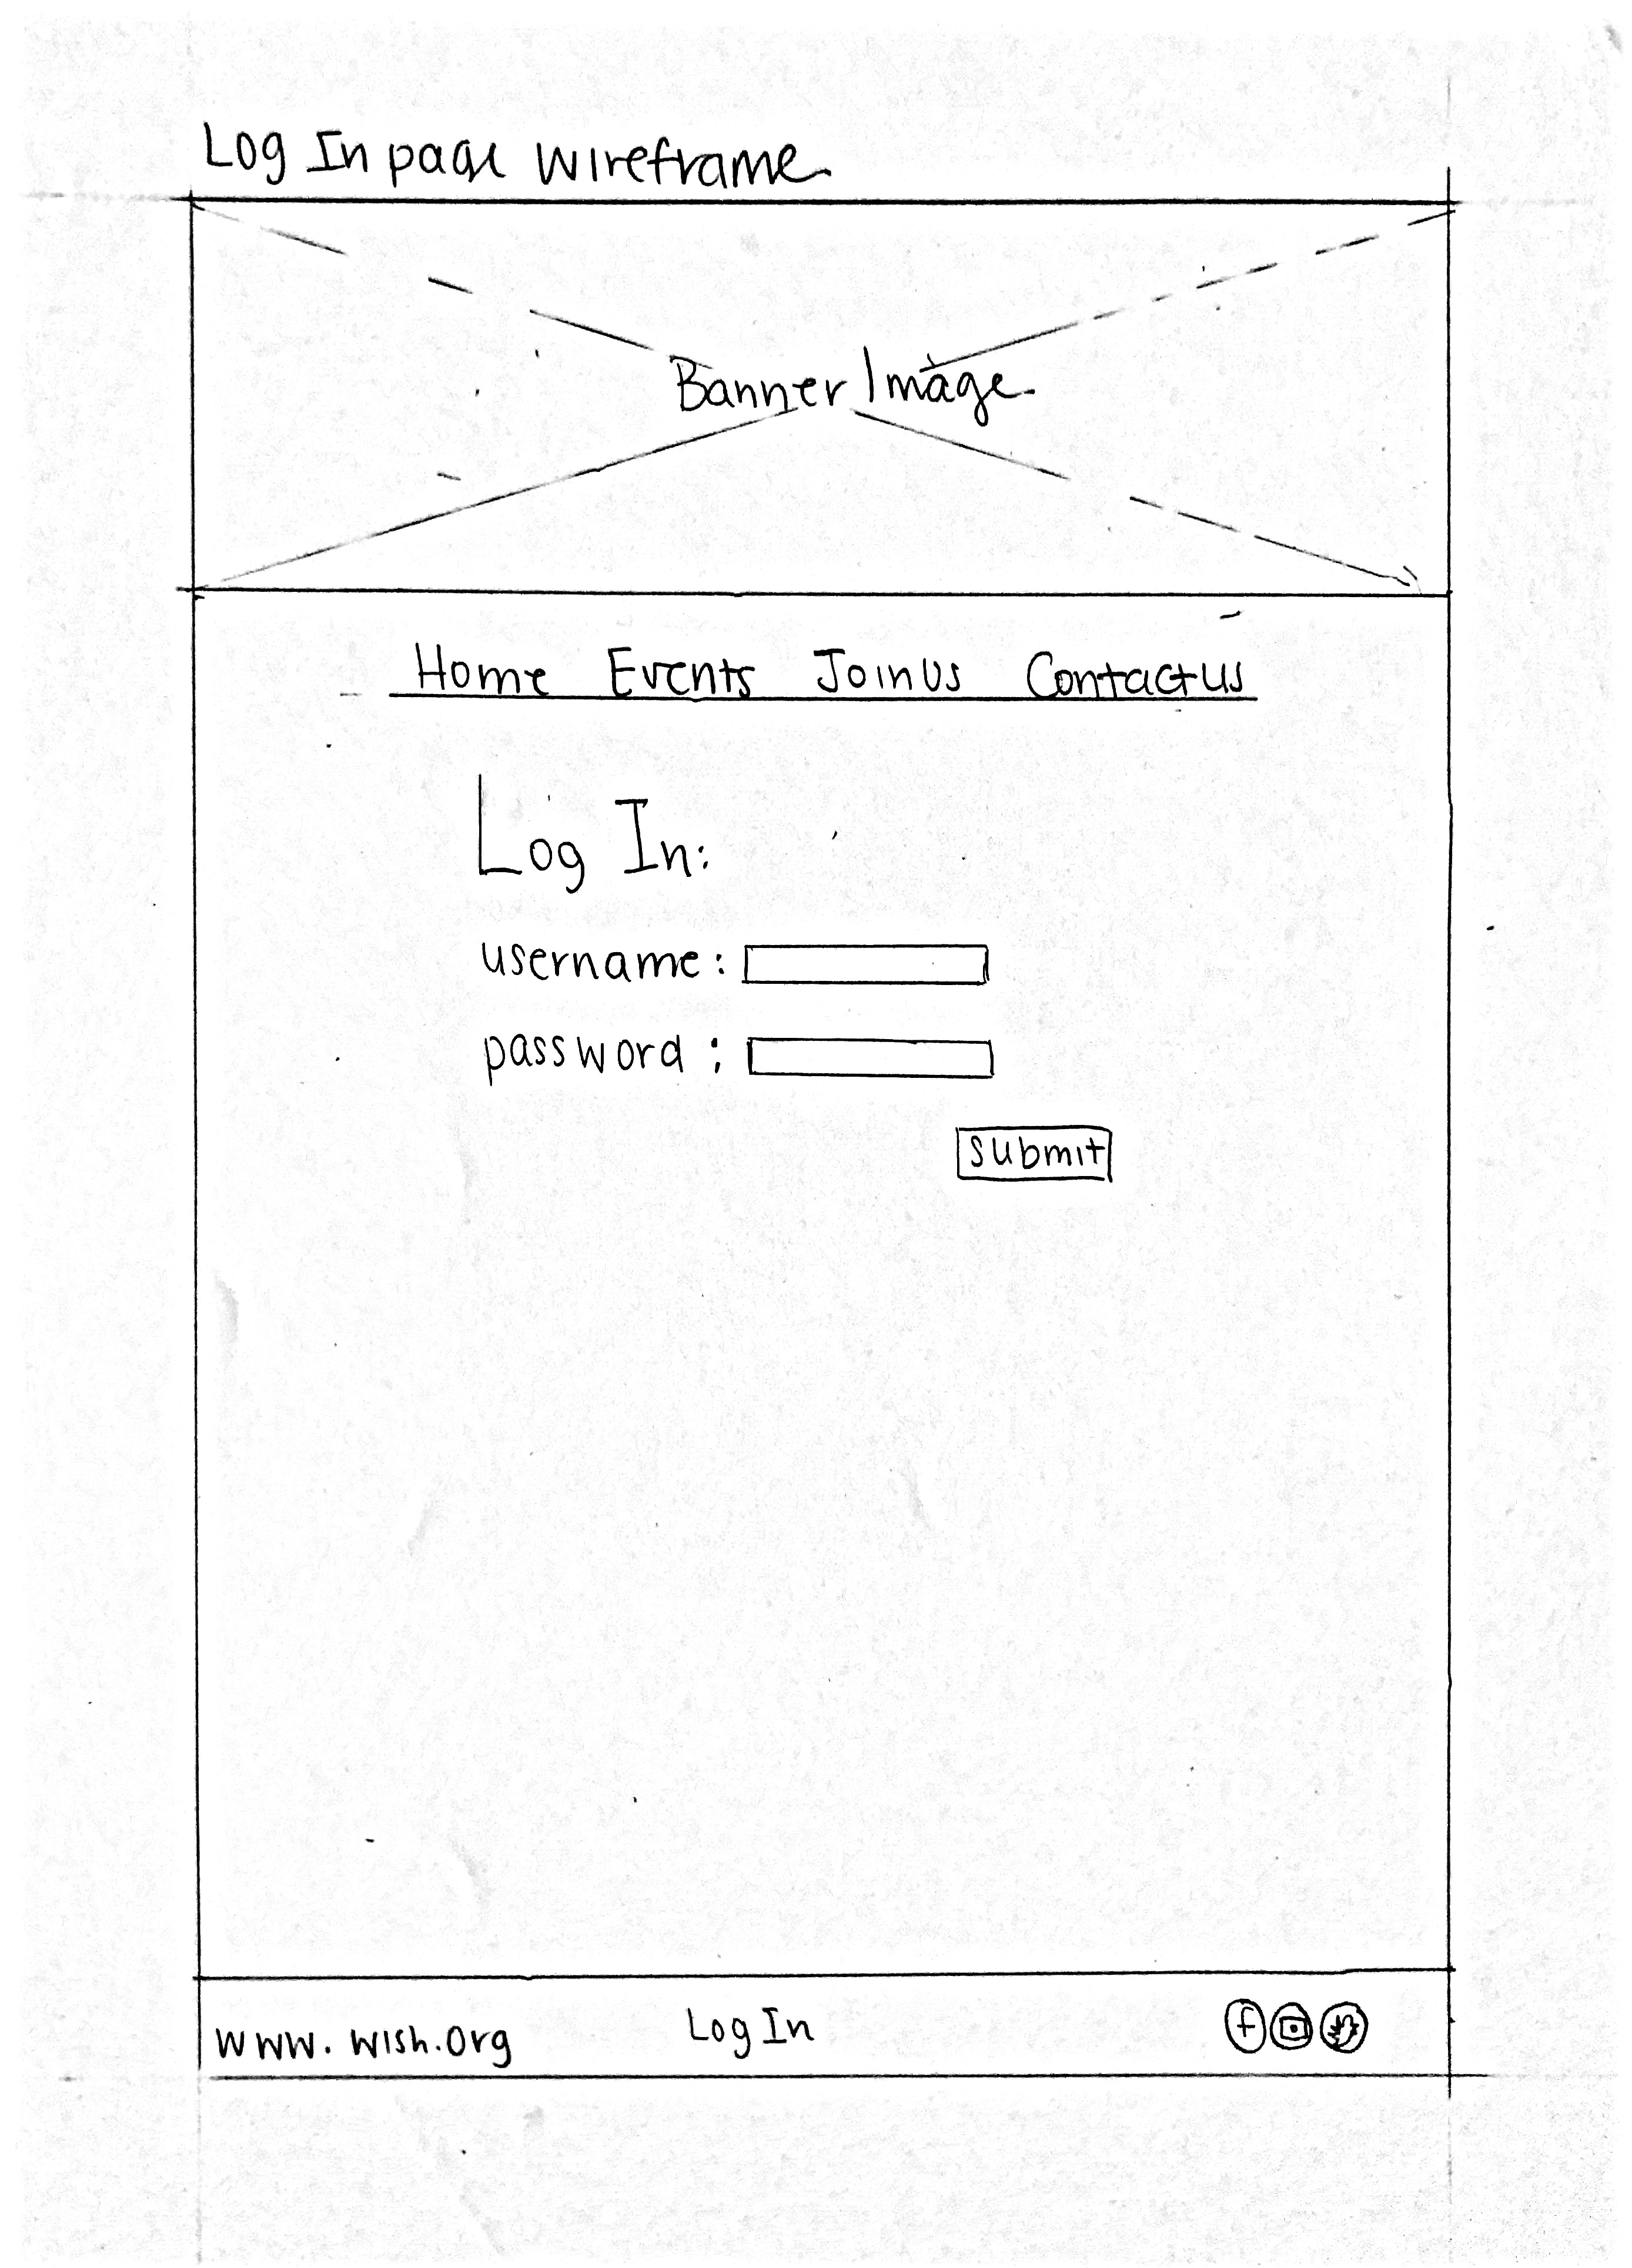 Log In page wireframe
Banner Image
Home Events Join Us Contact us
Log In:
username:
password:
submit
www.wish.org Log In f